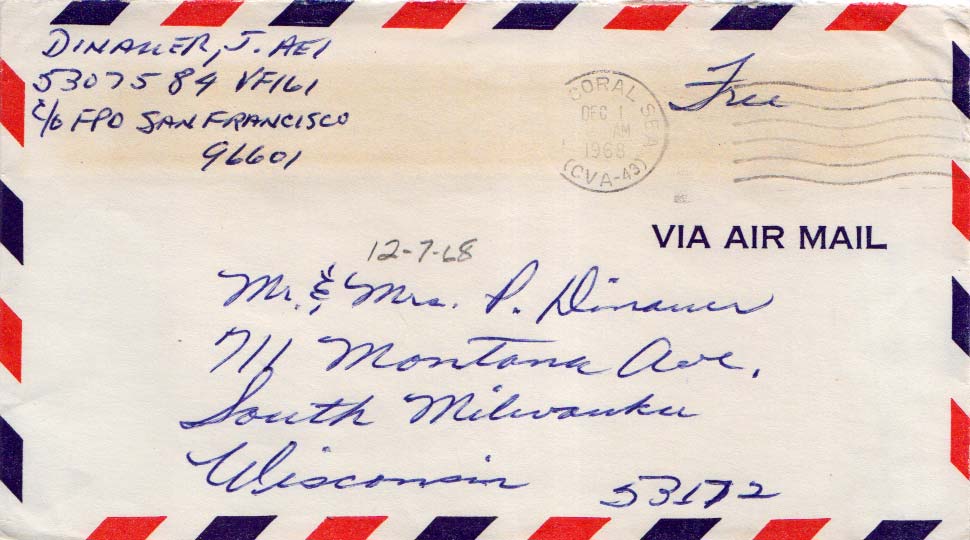 DINAUER, J. AE1
5307584 VF161
c/o FPO SAN FRANCISCO
96601
CORAL SEA
DEC 1
AM
1968
(CVA-43)
Free
VIA AIR MAIL
12-7-68
Mr. & Mrs. P. Dinauer
711 Montana Ave.
South Milwaukee
Wisconsin 53172